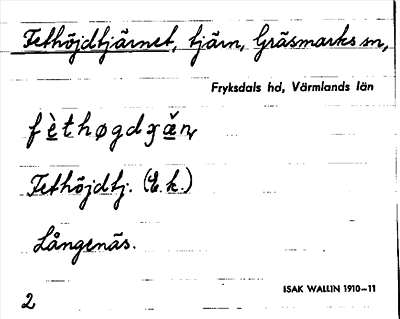 Fethöjdtjärnet, tjärn, Gräsmarks sn,
Fryksdals hd, Värmlands län
Fethöjdtj. (E.k.)
Långenäs.
ISAK WALLIN 1910–11
2